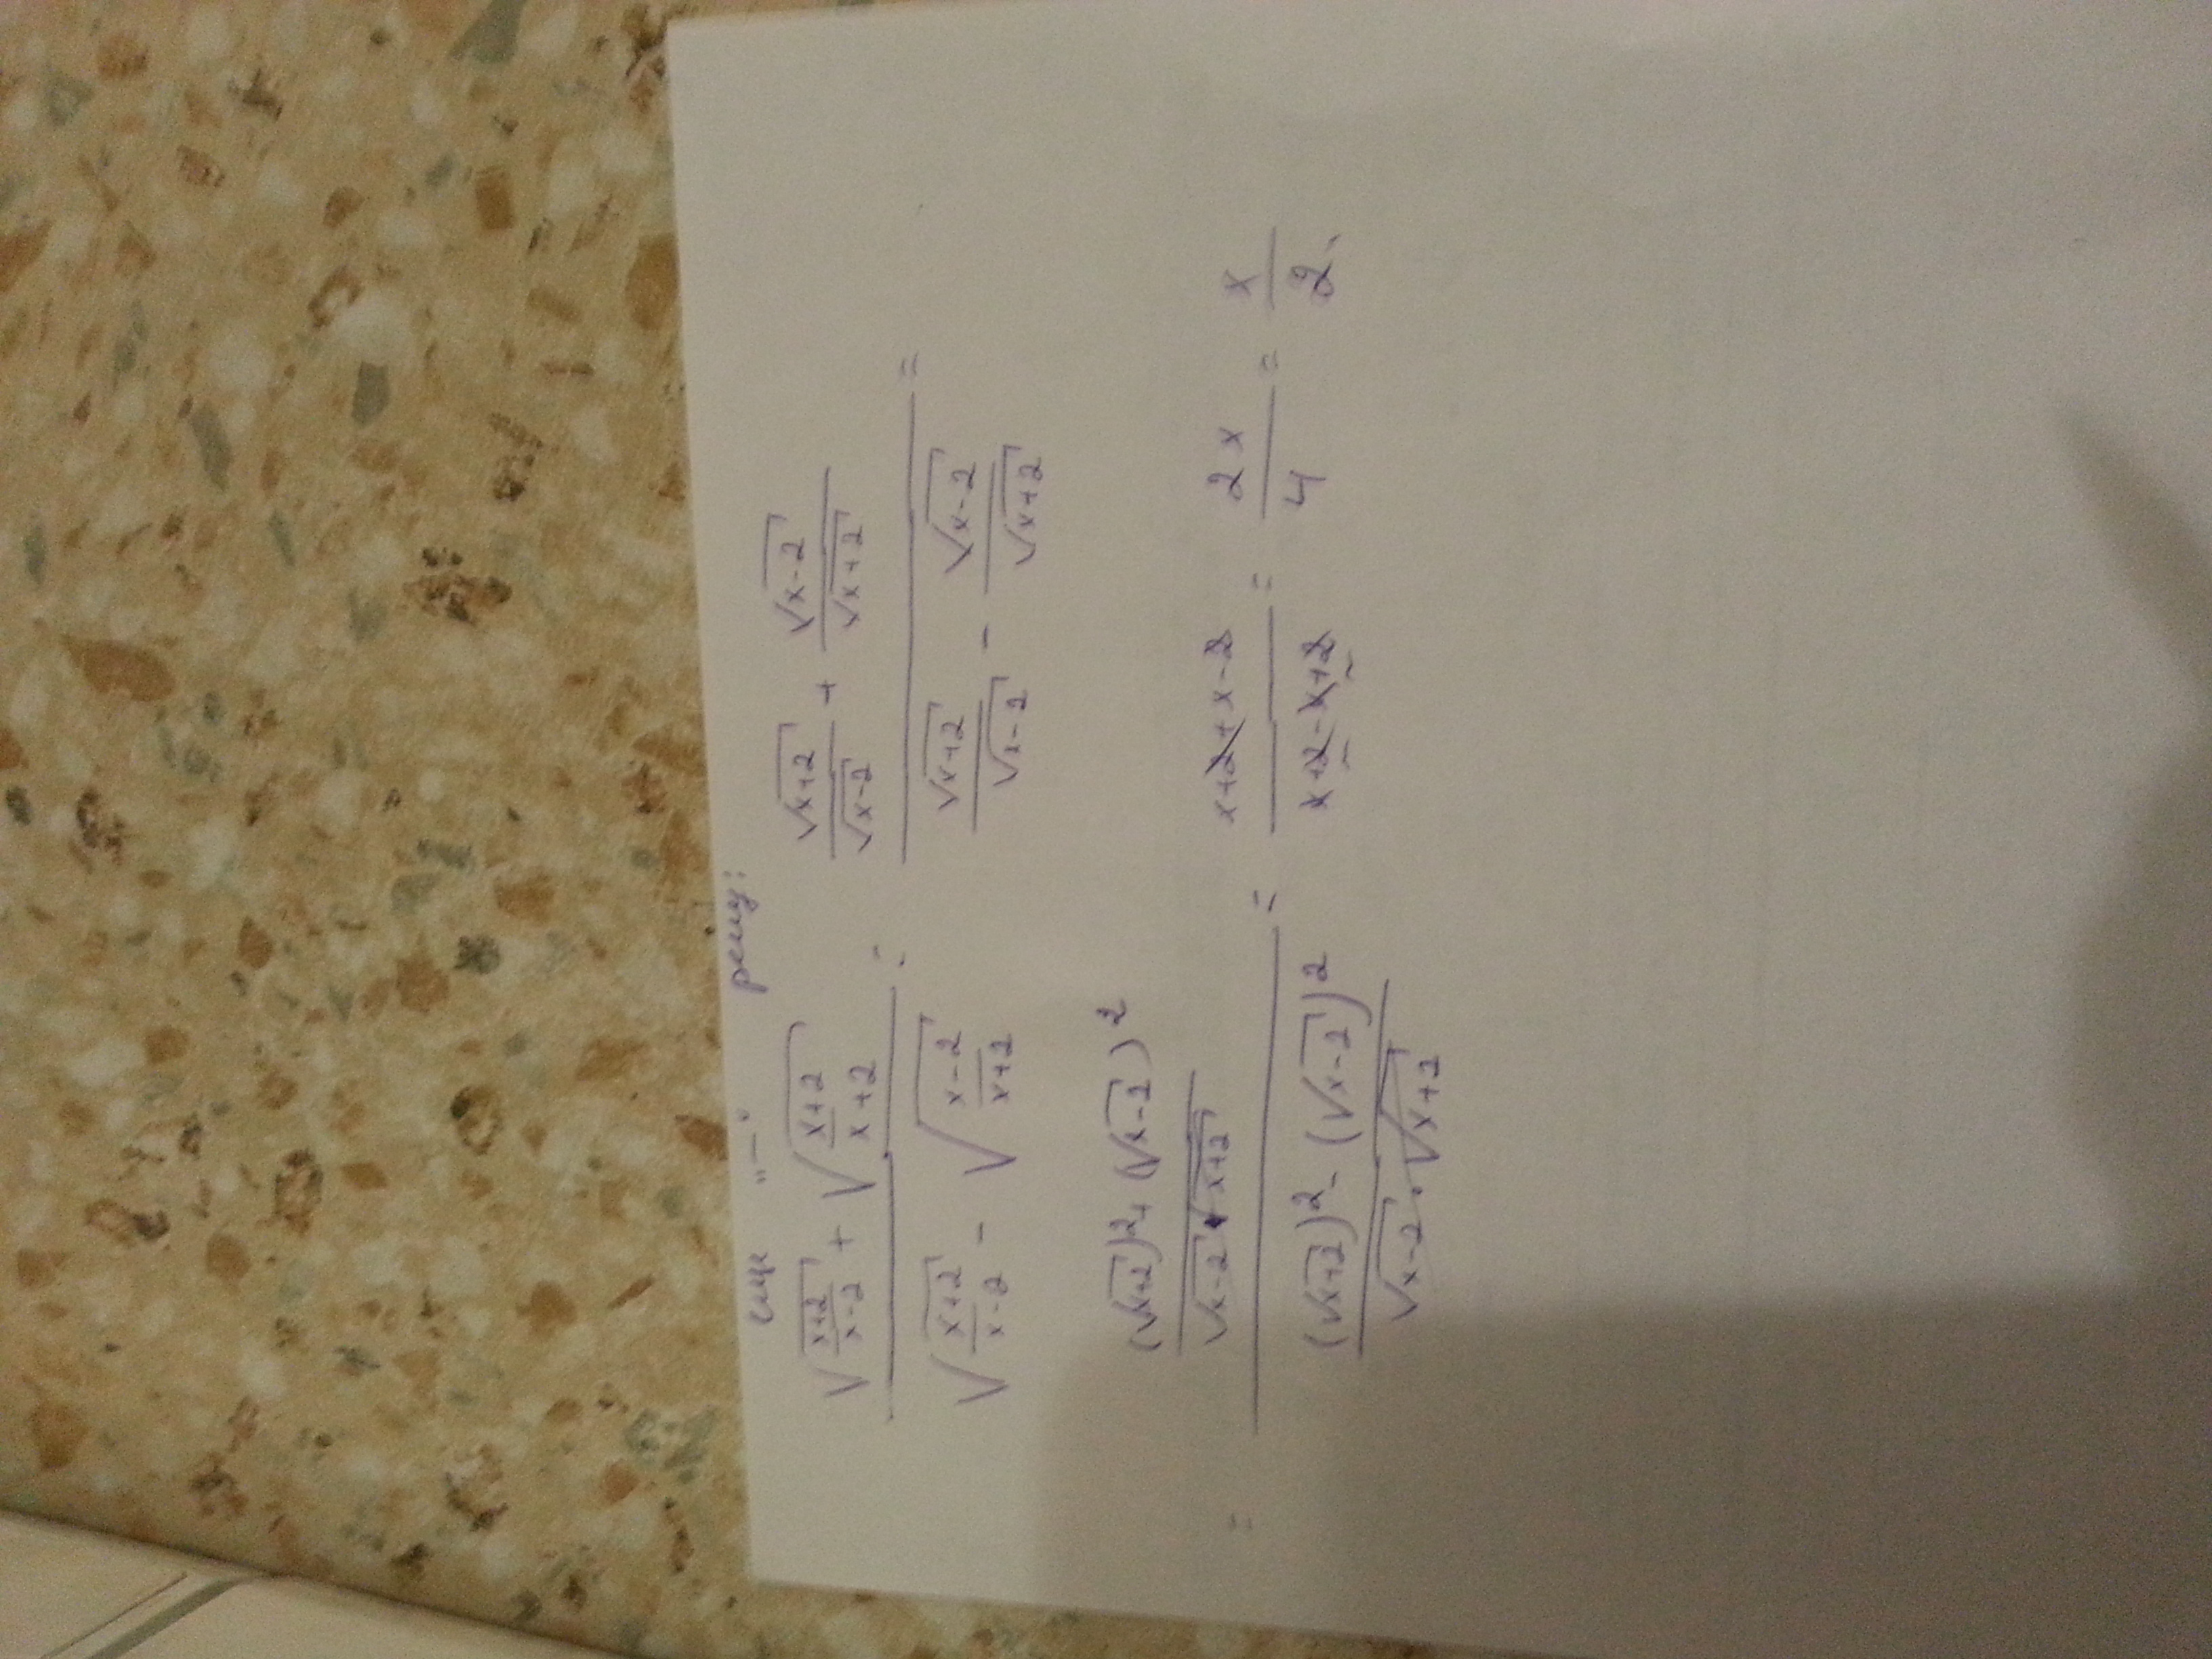 если "–" решу:
\frac{\sqrt{\frac{x+2}{x-2}} + \sqrt{\frac{x+2}{x+2}}}{\sqrt{\frac{x+2}{x-2}} - \sqrt{\frac{x-2}{x+2}}} = \frac{\frac{\sqrt{x+2}}{\sqrt{x-2}} + \frac{\sqrt{x-2}}{\sqrt{x+2}}}{\frac{\sqrt{x+2}}{\sqrt{x-2}} - \frac{\sqrt{x-2}}{\sqrt{x+2}}} =
= \frac{\frac{(\sqrt{x+2})^2 + (\sqrt{x-2})^2}{\sqrt{x-2} \cdot \sqrt{x+2}}}{\frac{(\sqrt{x+2})^2 - (\sqrt{x-2})^2}{\sqrt{x-2} \cdot \sqrt{x+2}}} = \frac{x+2+x-2}{x+2-x+2} = \frac{2x}{4} = \frac{x}{2}.